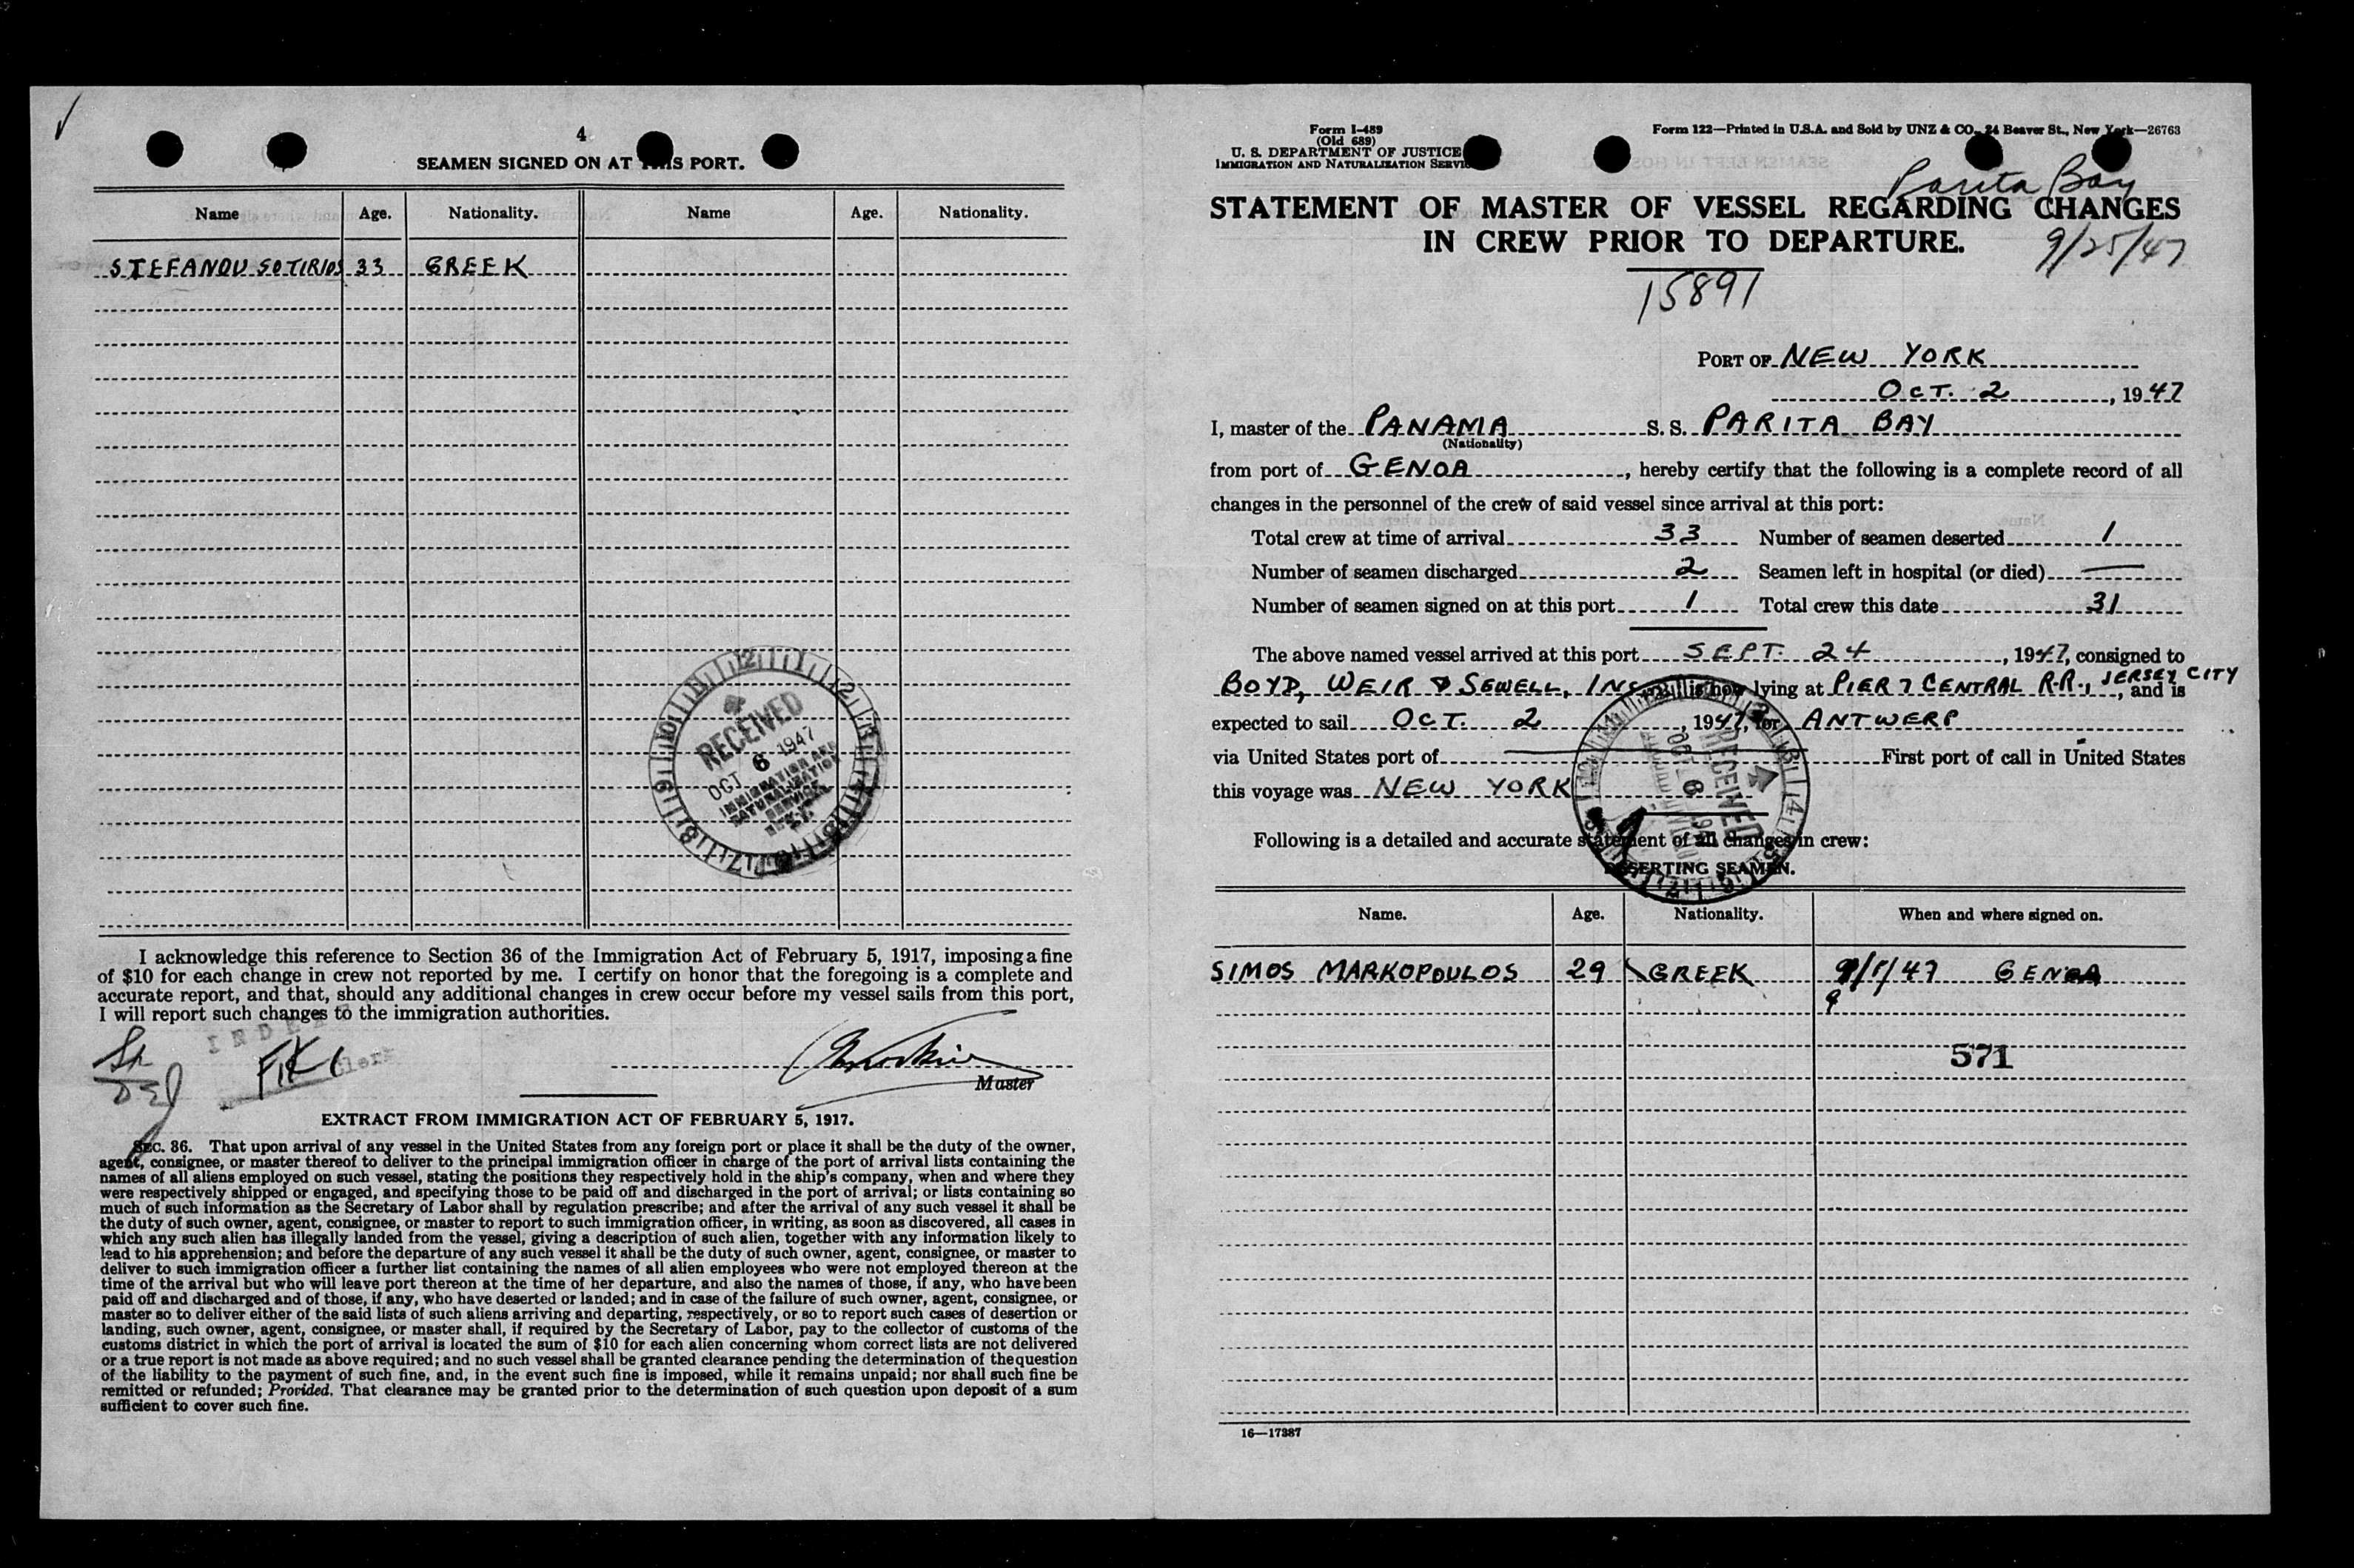 4
SEAMEN SIGNED ON AT THIS PORT.
Name Age. Nationality. Name Age. Nationality.
STEFANOU SOTIRIOS 33 GREEK
RECEIVED
OCT 6 1947
IMMIGRATION AND
NATURALIZATION
SERVICE
I acknowledge this reference to Section 36 of the Immigration Act of February 5, 1917, imposing a fine
of $10 for each change in crew not reported by me. I certify on honor that the foregoing is a complete and
accurate report, and that, should any additional changes in crew occur before my vessel sails from this port,
I will report such changes to the immigration authorities.
Master
EXTRACT FROM IMMIGRATION ACT OF FEBRUARY 5, 1917.
SEC. 36. That upon arrival of any vessel in the United States from any foreign port or place it shall be the duty of the owner,
agent, consignee, or master thereof to deliver to the principal immigration officer in charge of the port of arrival lists containing the
names of all aliens employed on such vessel, stating the positions they respectively hold in the ship's company, when and where they
were respectively shipped or engaged, and specifying those to be paid off and discharged in the port of arrival; or lists containing so
much of such information as the Secretary of Labor shall by regulation prescribe; and after the arrival of any such vessel it shall be
the duty of such owner, agent, consignee, or master to report to such immigration officer, in writing, as soon as discovered, all cases in
which any such alien has illegally landed from the vessel, giving a description of such alien, together with any information likely to
lead to his apprehension; and before the departure of any such vessel it shall be the duty of such owner, agent, consignee, or master to
deliver to such immigration officer a further list containing the names of all alien employees who were not employed thereon at the
time of the arrival but who will leave port thereon at the time of her departure, and also the names of those, if any, who have been
paid off and discharged and of those, if any, who have deserted or landed; and in case of the failure of such owner, agent, consignee, or
master so to deliver either of the said lists of such aliens arriving and departing, respectively, or so to report such cases of desertion or
landing, such owner, agent, consignee, or master shall, if required by the Secretary of Labor, pay to the collector of customs of the
customs district in which the port of arrival is located the sum of $10 for each alien concerning whom correct lists are not delivered
or a true report is not made as above required; and no such vessel shall be granted clearance pending the determination of the question
of the liability to the payment of such fine, and, in the event such fine is imposed, while it remains unpaid; nor shall such fine be
remitted or refunded; Provided, That clearance may be granted prior to the determination of such question upon deposit of a sum
sufficient to cover such fine.
Form I-489
(Old 689)
U. S. DEPARTMENT OF JUSTICE
IMMIGRATION AND NATURALIZATION SERVICE
Form 122—Printed in U.S.A. and Sold by UNZ & CO., 24 Beaver St., New York—26763
Parita Bay
STATEMENT OF MASTER OF VESSEL REGARDING CHANGES
IN CREW PRIOR TO DEPARTURE.
9/25/47
15891
PORT OF NEW YORK
OCT. 2, 1947
I, master of the PANAMA S. S. PARITA BAY
(Nationality)
from port of GENOA, hereby certify that the following is a complete record of all
changes in the personnel of the crew of said vessel since arrival at this port:
Total crew at time of arrival 33 Number of seamen deserted 1
Number of seamen discharged 2 Seamen left in hospital (or died) —
Number of seamen signed on at this port 1 Total crew this date 31
The above named vessel arrived at this port SEPT. 24, 1947, consigned to
BOYD, WEIR & SEWELL, INC. is now lying at PIER 7 CENTRAL R.R., JERSEY CITY, and is
expected to sail OCT. 2, 1947, for ANTWERP
via United States port of First port of call in United States
this voyage was NEW YORK
RECEIVED
Following is a detailed and accurate statement of all changes in crew:
DESERTING SEAMEN.
Name. Age. Nationality. When and where signed on.
SIMOS MARKOPOULOS 29 GREEK 9/1/47 GENOA
9
571
16—17387